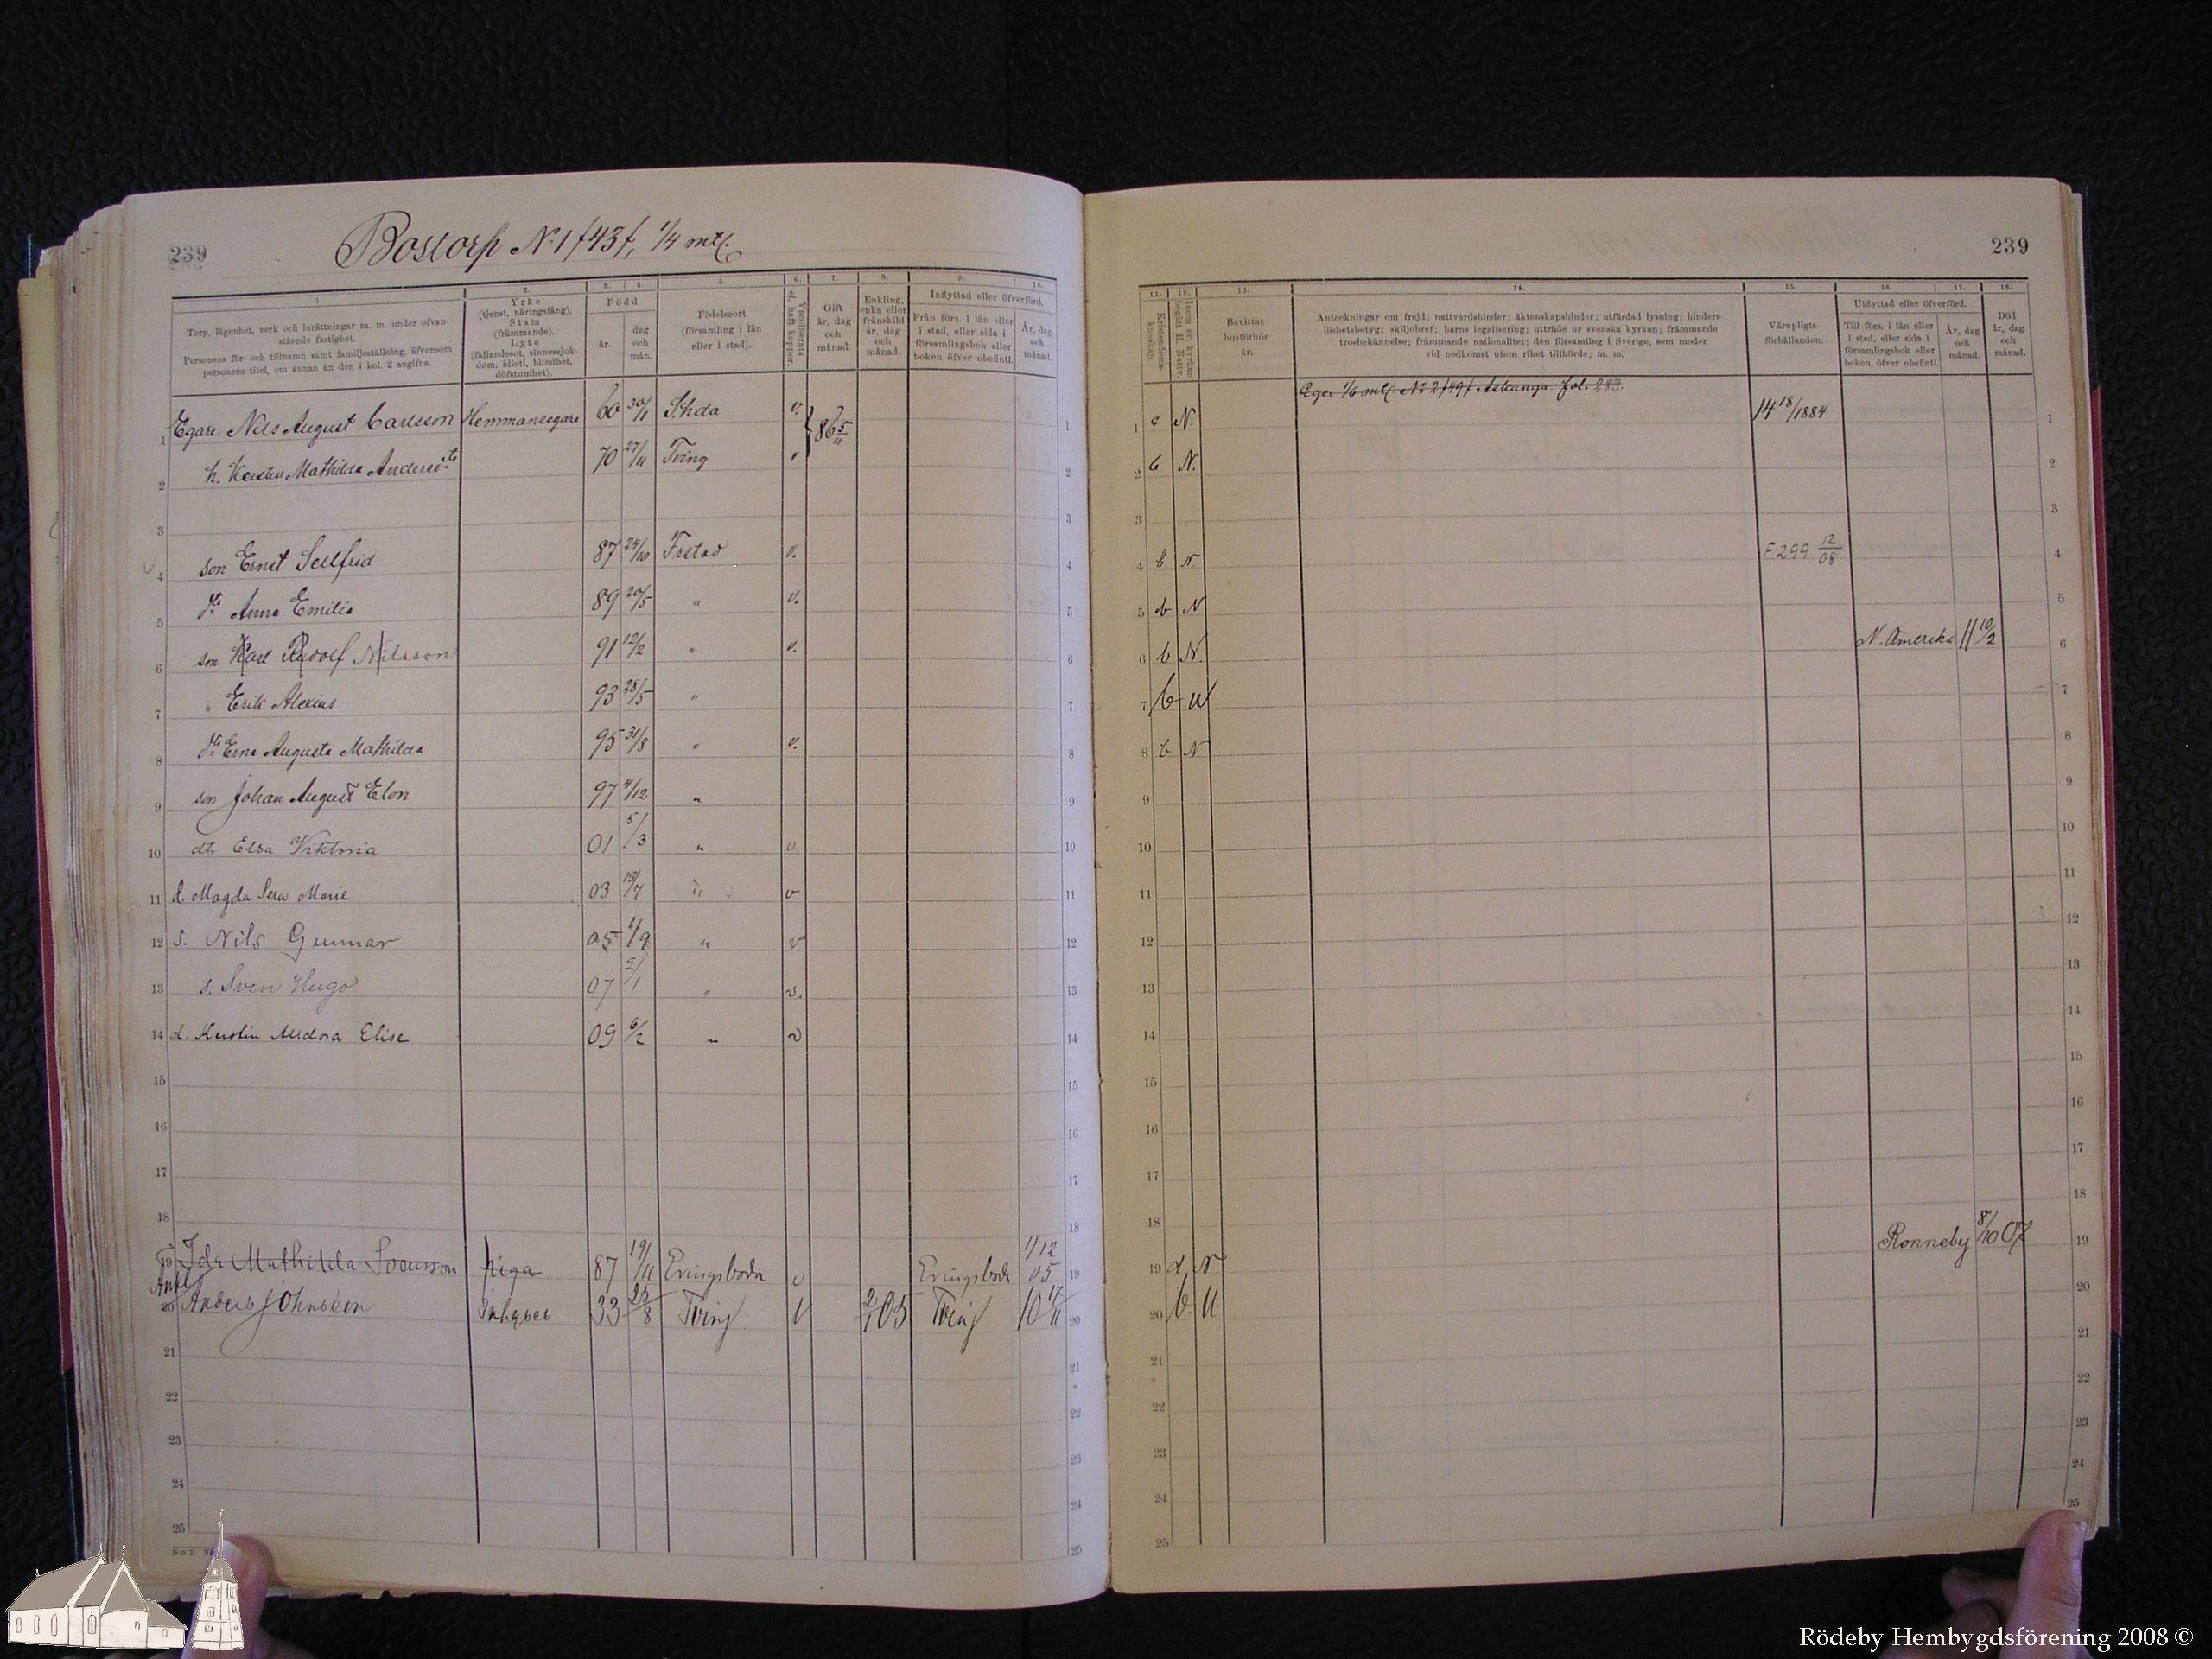 239
Bostorp No 1 /43/, 1/4 mtl.
1. 2. 3. 4. 5. 6. 7. 8. 9. 10.
Torp, lägenhet, verk och inrättningar m. m. under ofvan-
stående fastighet.
Personens för- och tillnamn samt familjeställning, äfvensom
personens titel, om annan än den i kol. 2 angifna.
Yrke
(tjenst, näringsfång).
Stam
(främmande).
Lyte
(fallandesot, sinnessjuk-
dom, idioti, blindhet,
döfstumhet).
Född
år.
dag
och
mån.
Födelseort
(församling i län
eller i stad).
Vaccinerats
el. haft koppor.
Gift
år, dag
och
månad.
Enkling,
enka eller
frånskild
år, dag
och
månad.
Inflyttad eller öfverförd.
Från förs. i län eller
i stad, eller sida i
församlingsbok eller
boken öfver obefintl.
År, dag
och
månad.
1 Egare Nils August Carlsson Hemmansegare 60 30/1 S:hda v. 86 5/11 1
2 h. Kersten Mathilda Andersdtr 70 27/11 Tving 2
3 3
4 son Ernst Sellfrid 87 24/10 Frstad v. 4
5 dtr Anna Emilia 89 20/5 " v. 5
6 son Karl Rudolf Nilsson 91 12/2 " v. 6
7 " Erik Alexius 93 28/5 " 7
8 dtr Erna Augusta Mathilda 95 31/8 " v. 8
9 son Johan August Elon 97 4/12 " 9
10 dtr Elsa Viktoria 01 5/3 " v. 10
11 d. Magda Sera Marie 03 19/7 " v 11
12 s. Nils Gunnar 05 1/9 " v 12
13 s. Sven Hugo 07 2/1 " v. 13
14 d. Kerstin Elise 09 6/2 " v 14
15 15
16 16
17 17
18 18
19 Ida Mathilda Svensson piga 87 19/11 Eringsboda v Eringsboda 1/12 05 19
20 Anders Johnsson Inhyses 33 25/8 Tving V 2/1 05 Tving 10 17/11 20
21 21
22 22
23 23
24 24
25 25
239
11. 12. 13. 14. 15. 16. 17. 18.
Kristendoms-
kunskap.
Inom sv. kyrkan
begått H. Nattv.
Bevistat
husförhör
år.
Anteckningar om frejd; nattvardshinder; äktenskapshinder; utfärdad lysning; hinders-
löshetsbetyg; skiljobref; barns legalisering; utträde ur svenska kyrkan; främmande
trosbekännelse; främmande nationalitet; den församling i Sverige, som moder
vid nedkomst utom riket tillhörde; m. m.
Värnpligts-
förhållanden.
Utflyttad eller öfverförd.
Till förs. i län eller
i stad, eller sida i
församlingsbok eller
boken öfver obefintl.
År, dag
och
månad.
Död
år, dag
och
månad.
Eger 1/6 mtl. No 2 /49/ Askunga fol. 283.
1 c N. 14 18/1884 1
2 b N. 2
3 3
4 b N. F 299 12/08 4
5 b N 5
6 b N. N. Amerika 11 10/2 6
7 b u 7
8 b N 8
9 9
10 10
11 11
12 12
13 13
14 14
15 15
16 16
17 17
18 18
19 d N Ronneby 8/10 07 19
20 b. U. 20
21 21
22 22
23 23
24 24
25 25
Rödeby Hembygdsförening 2008 ©